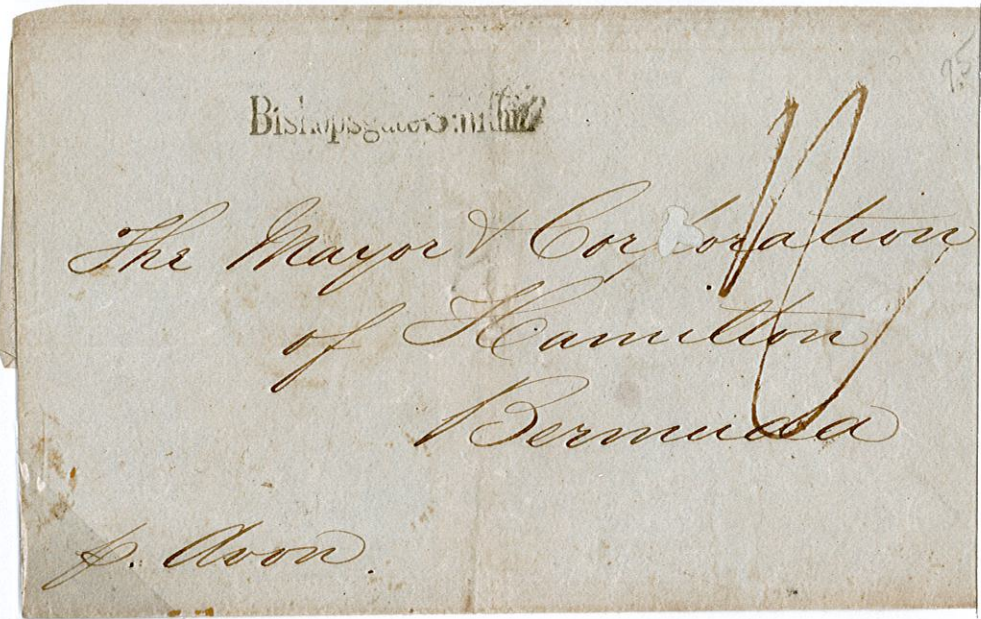 95
Bishopsgate
The Mayor & Corporation
of Hamilton
Bermuda
p. Avon.